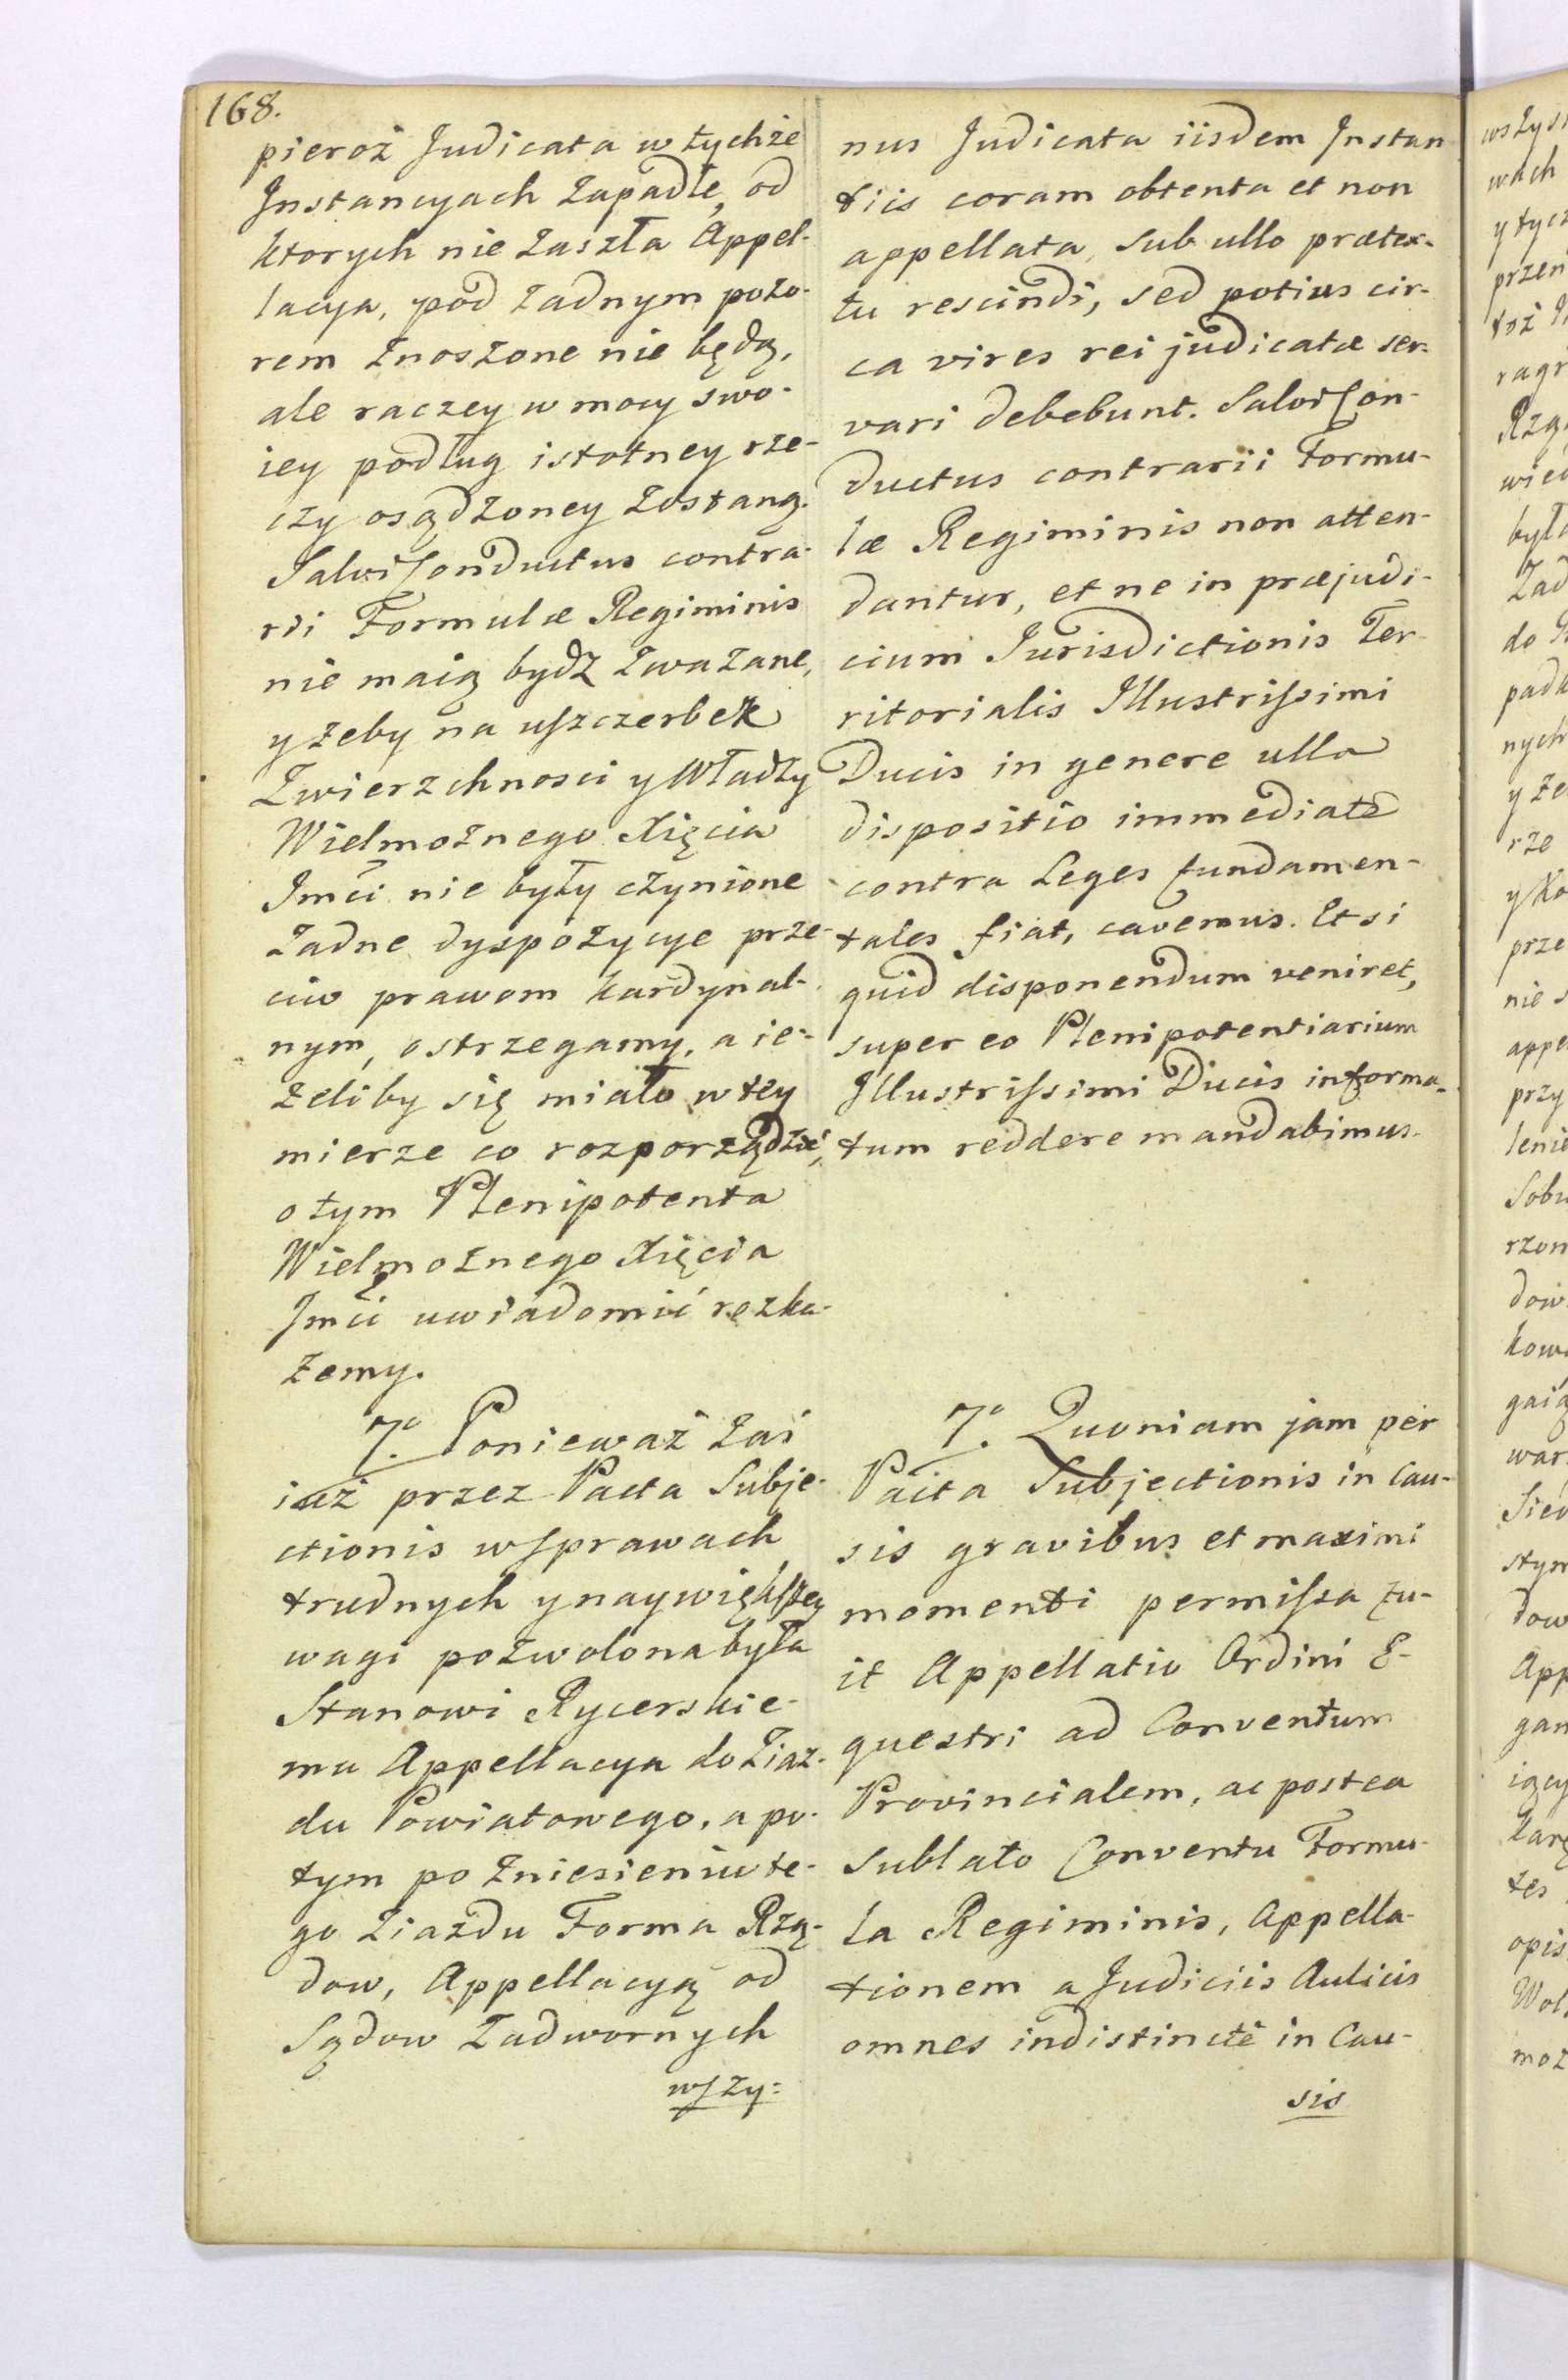 168.
pieroż Judicata w tychże
Instancyach zapadłe, od
ktorych nie zaszła Appel-
lacya, pod żadnym pozo-
rem znoszone nie będą,
ale raczey w mocy swo-
iey podług istotney rze-
czy osądzoney zostaną.
Salvi Conductus contra-
rii Formulæ Regiminis
nie maią bydz zważane,
y żeby na uszczerbek
Zwierzchnosci y Władzy
Wielmożnego Xięcia
Jmci nie były czynione
żadne dyspozycye prze-
ciw prawom kardynal-
nym, ostrzegamy, a ie-
żeliby się miało w tey
mierze co rozporządzić,
o tym Plenipotenta
Wielmożnego Xięcia
Jmci uwiadomić rozka-
żemy.
7º. Ponieważ zaś
iuż przez Pacta Subje-
ctionis w sprawach
trudnych y naywiększey
wagi pozwolona była
Stanowi Rycerskie-
mu Appellacya do Ziaz-
du Powiatowego, a po-
tym po zniesieniu te-
go Ziazdu Forma Rzą-
dow, Appellacyą od
Sądow Zadwornych
wszy-
nus Judicata iisdem Instan
tiis coram obtenta et non
appellata, sub ullo prætex-
tu rescindi, sed potius cir-
ca vires rei judicatæ ser-
vari debebunt. Salvi Con-
ductus contrarii Formu-
læ Regiminis non atten-
dantur, et ne in præjudi-
cium Jurisdictionis Ter-
ritorialis Illustrissimi
Ducis in genere ulla
dispositio immediatè
contra Leges fundamen-
tales fiat, cavemus. Et si
quid disponendum veniret,
super eo Plenipotentiarium
Illustrissimi Ducis informa-
tum reddere mandabimus.
7º. Quoniam jam per
Pacta Subjectionis in Cau-
sis gravibus et maximi
momenti permissa fu-
it Appellatio Ordini E-
questri ad Conventum
Provincialem, ac postea
sublato Conventu Formu-
la Regiminis, Appella-
tionem a Judiciis Aulicis
omnes indistinctè in Cau-
sis